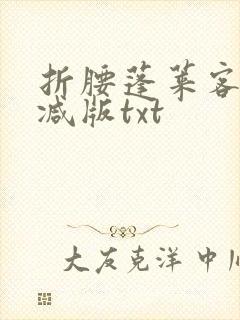 折腰蓬莱客
减版txt
大友克洋 中川